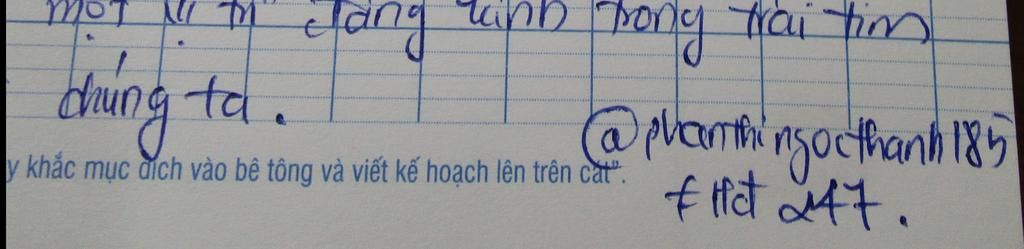 một vị trí đáng kính trong trái tim
chúng ta.
@phanthingocthanh185
y khắc mục đích vào bê tông và viết kế hoạch lên trên cát".
247.